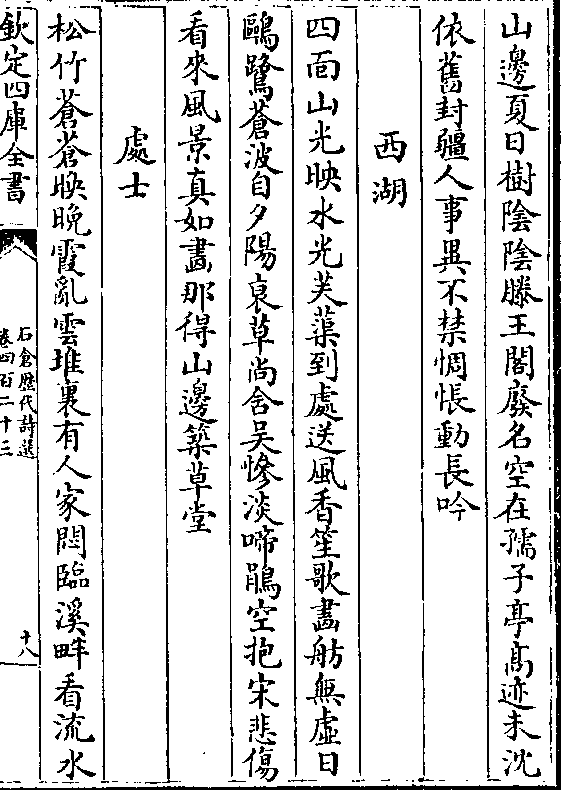 山邊夏日樹陰陰滕王閣廢名空在孺子亭髙迹未沈
依舊封疆人事異不禁惆悵動長吟
西湖
四面山光映水光芙蕖到處送風香笙歌畵舫無虚日
鷗鷺蒼波自夕陽衰草尚含吳慘淡啼鵑空抱宋悲傷
看來風景真如畵那得山邊築草堂
處士
松竹蒼蒼映晚霞亂雲堆裏有人家悶臨溪畔看流水
欽定四庫全書
石倉歴代詩選
卷四百二十三
十八